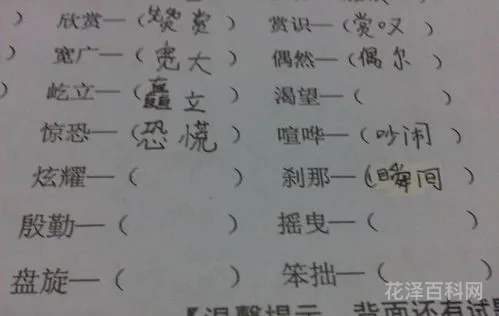 ) 欣赏—(赞赏) 赏识—(赏叹
) 宽广—(宽大) 偶然—(偶尔)
) 屹立—(矗立) 渴望—( )
惊恐—(恐慌) 喧哗—(吵闹)
炫耀—( ) 刹那—(瞬间)
殷勤—( ) 摇曳—( )
盘旋—( ) 笨拙—(
【温馨提示 背面还有试题
花泽百科网